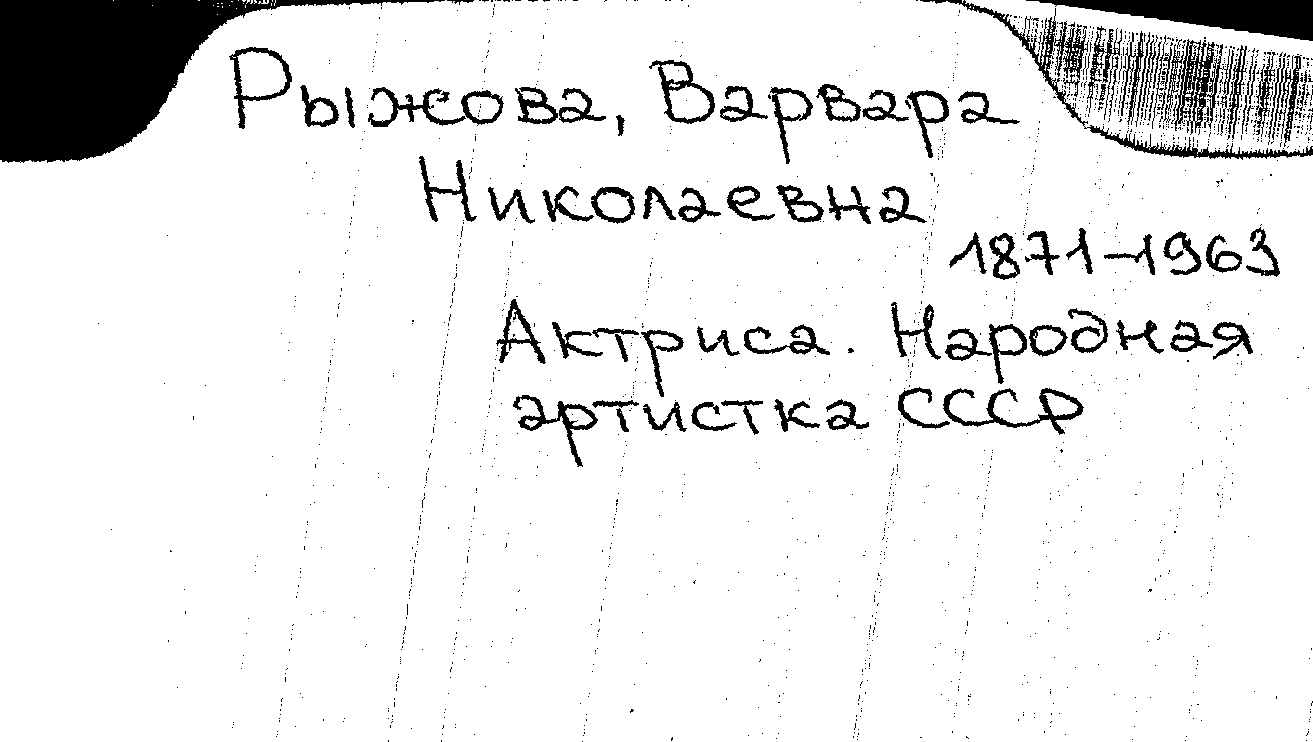 Рыжова, Варвара
Николаевна
1871-1963
Актриса. Народная
артистка СССР